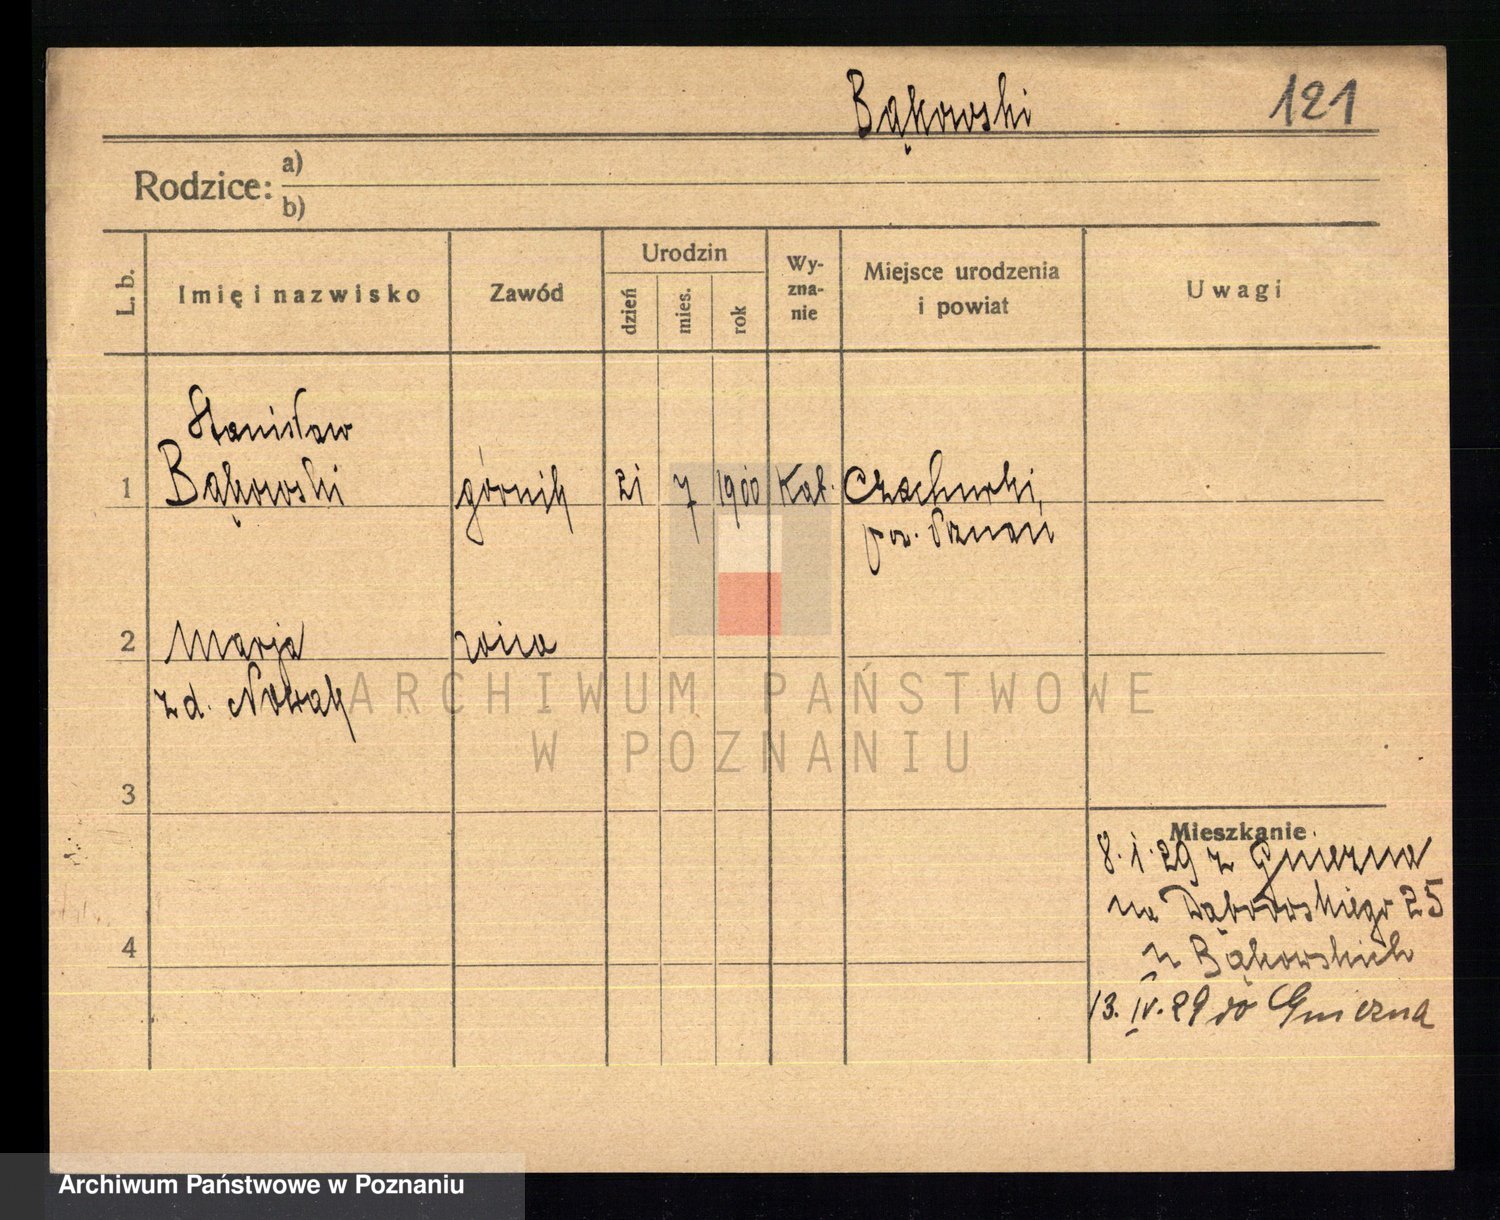 Bąkowski
121
Rodzice: a)
b)
L. b.
Imię i nazwisko
Zawód
Urodzin
dzień
mies.
rok
Wy-
zna-
nie
Miejsce urodzenia
i powiat
Uwagi
Stanisław
1 Bąkowski górnik 21 7 1900 Kat. Czachurki,
pow. Poznań
2 Marja żona
z d. Nowak
ARCHIWUM PAŃSTWOWE
W POZNANIU
3
Mieszkanie.
8.1.29 z Gniezna
na Dąbrowskiego 25
u Bąkowskich
4
13.IV.29 do Gniezna
Archiwum Państwowe w Poznaniu